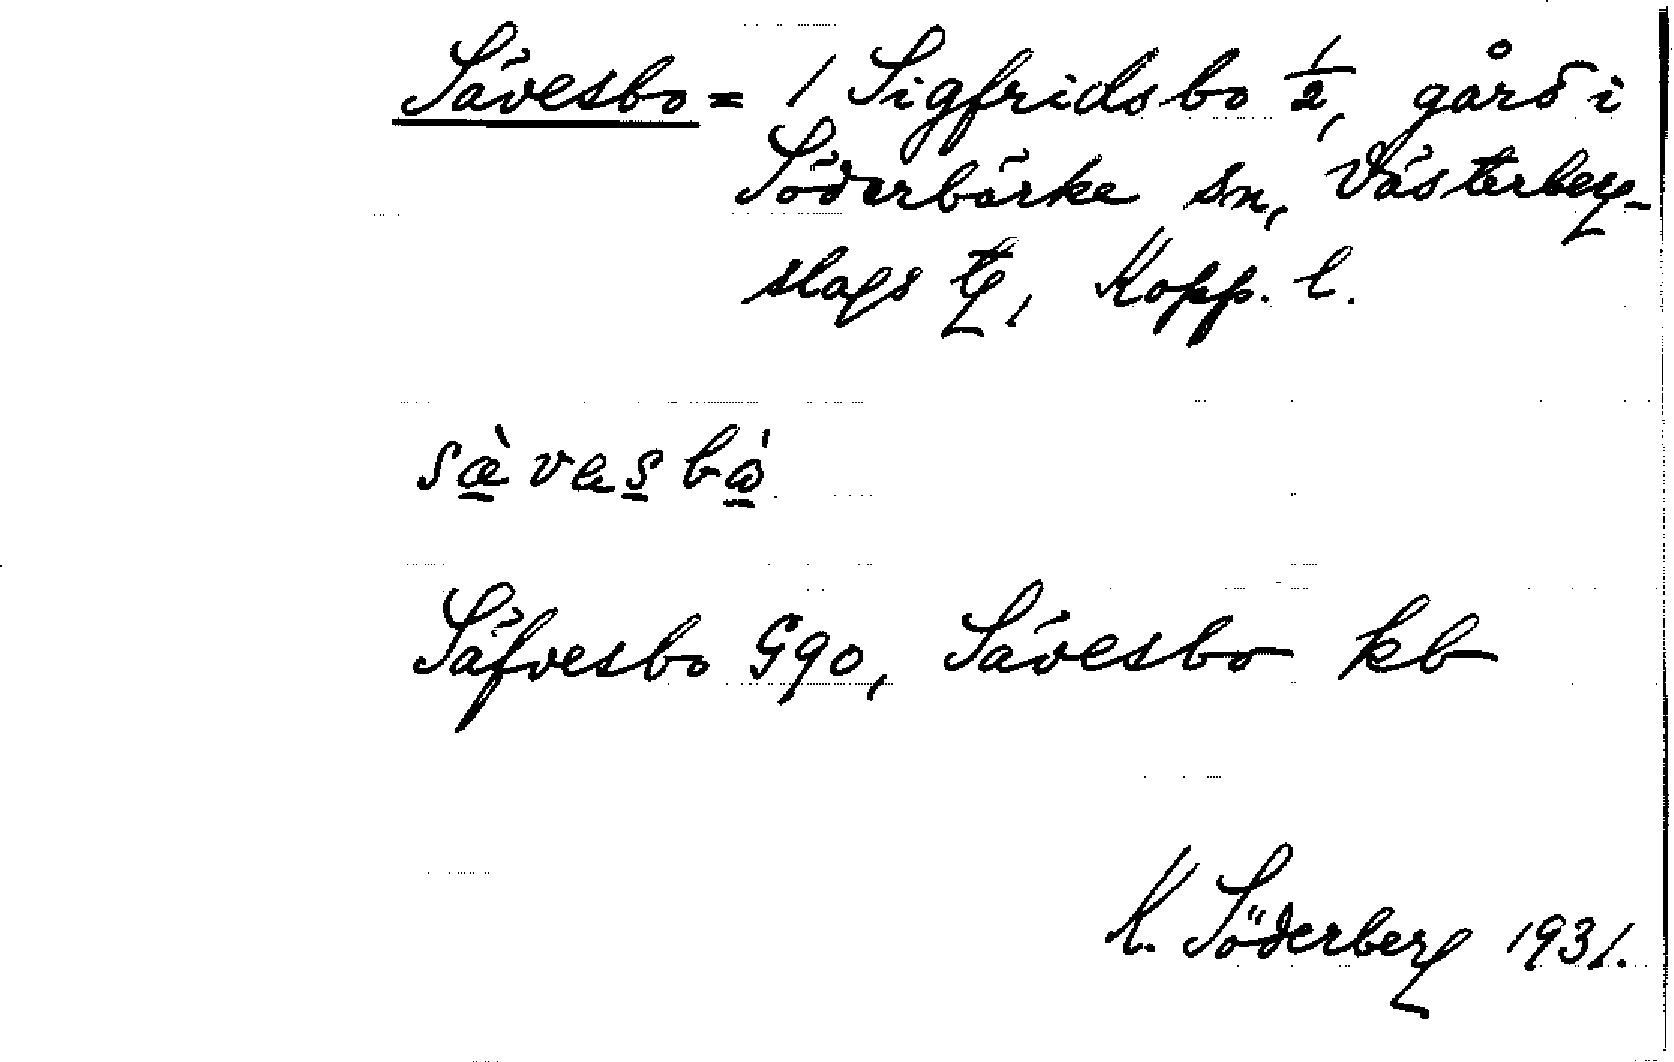 Sävesbo = 1 Sigfridsbo 1/2, gård i
Söderbärke sn, Västerberg-
slags tg, Kopp. l.
sæ̀vesbå̀
Säfvesbo G90, Sävesbo kb
K. Söderberg 1931.